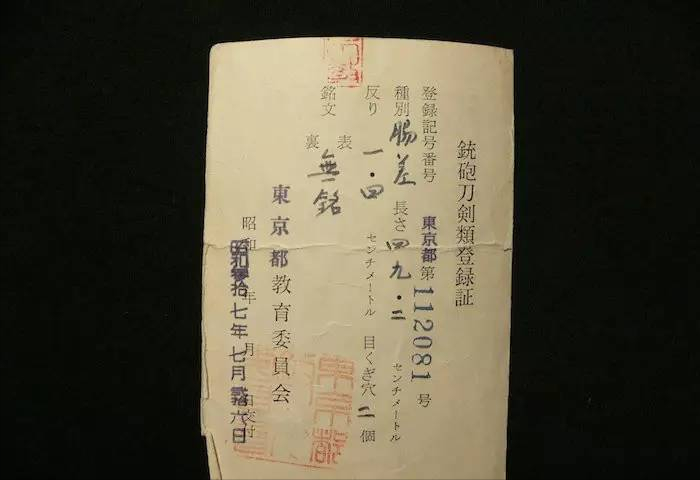 銃砲刀剣類登録証
登録記号番号 東京都 第 112081 号
種別 脇差 長さ 四九・二 センチメートル
反り 一・四 センチメートル 目くぎ穴 二 個
銘文 表 無銘
裏
東京都教育委員会
昭和 年 月 日交付
昭和参拾七年七月 六日